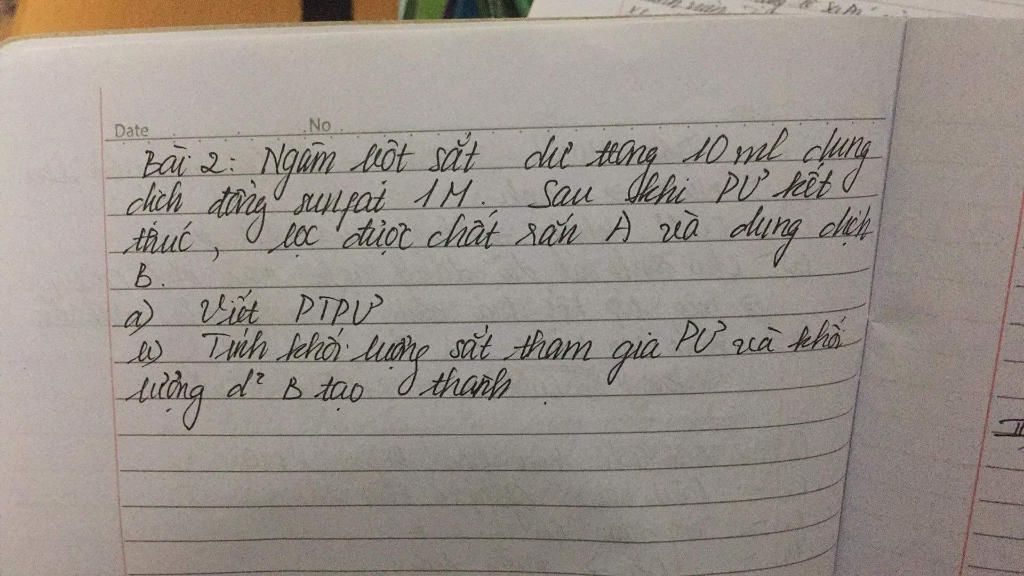 Date No
Bài 2: Ngâm bột sắt dư trong 10 ml dung
dịch đồng sunfat 1M. Sau khi PƯ kết
thúc, lọc được chất rắn A và dung dịch
B.
a) Viết PTPƯ
b) Tính khối lượng sắt tham gia PƯ và khối
lượng d² B tạo thành.